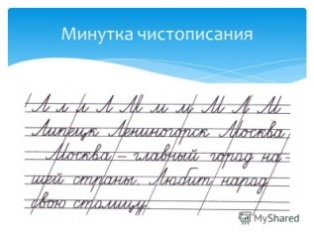 Минутка чистописания
Л л л Л М м м М Л М
Липецк Лениногорск Москва
Москва – главный город на-
шей страны. Любит народ
свою столицу.
MyShared